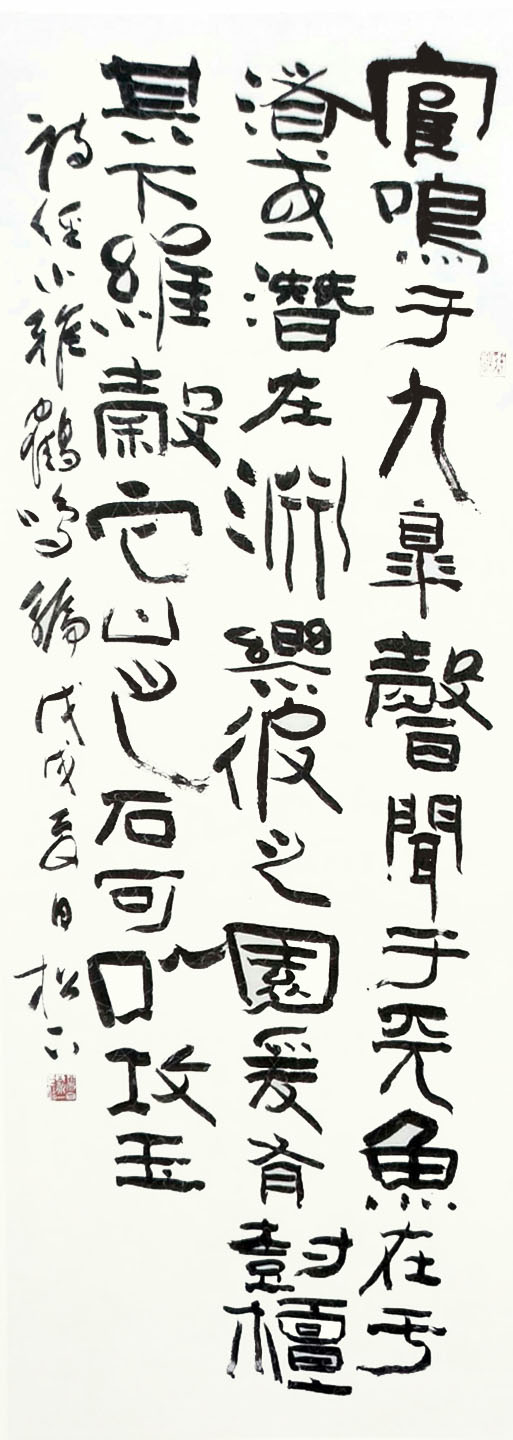 寉鳴于九皋聲聞于天魚在于
渚或潛在淵樂彼之園爰有尌檀
其下維榖它山之石可以攻玉
詩經小雅鶴鳴篇 戊戌夏日 松下